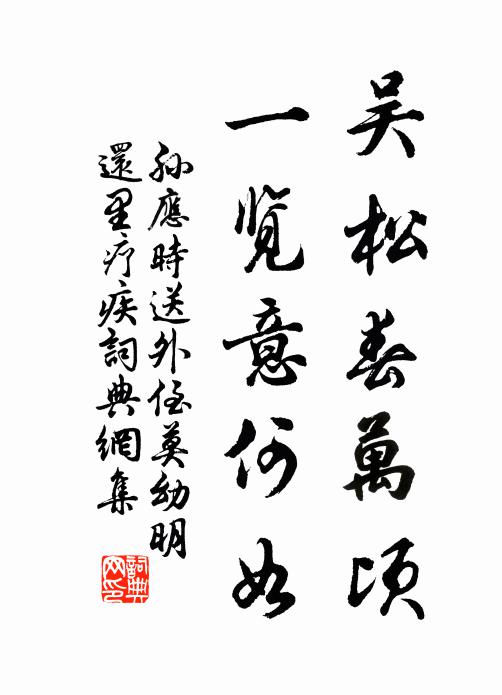 吴松春萬頃
一览意何如
孙應時送外侄莫幼明
還里疗疾詞典網集
詞典网印